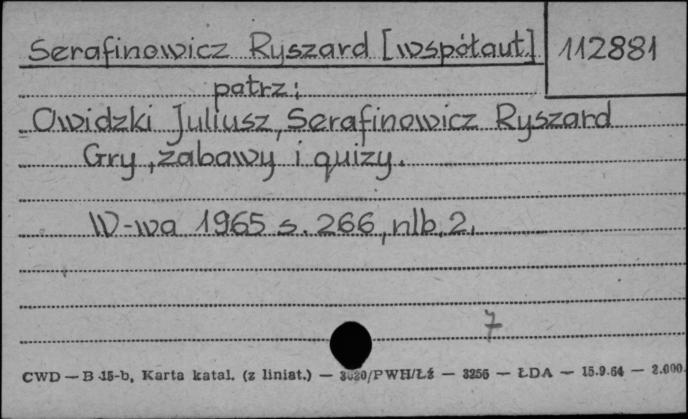 Serafinowicz Ryszard [współaut.] 112881
patrz:
Owidzki Juliusz, Serafinowicz Ryszard
Gry, zabawy i quizy.
W-wa 1965 s. 266, nlb. 2.
7
CWD — B-15-b, Karta katal. (z liniat.) — 3020/PWH/Łź — 3256 — ŁDA — 15.9.64 — 2.000.